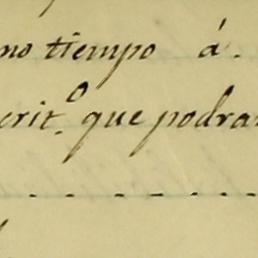 mo tiempo á.
crit.º que podra